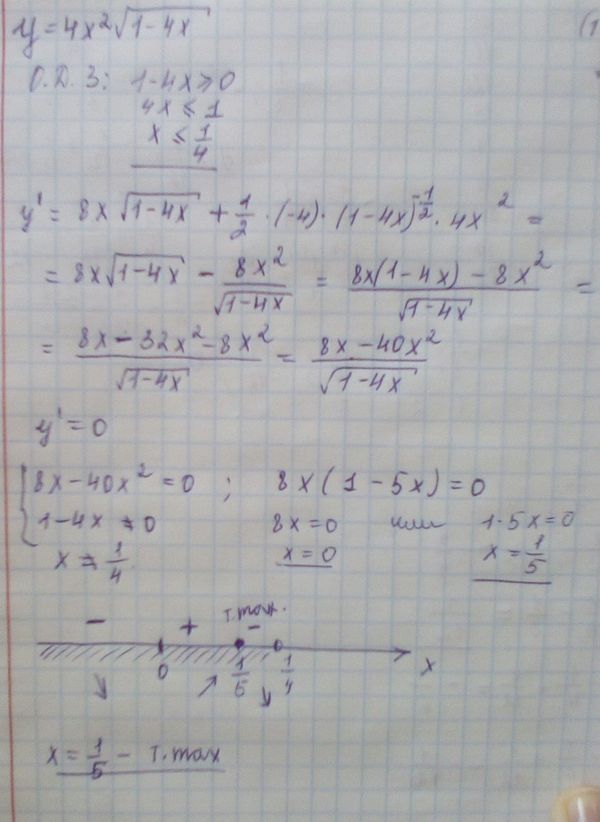 y = 4x²√(1-4x)
(1
О.Д.З: 1-4x ≥ 0
4x ≤ 1
x ≤ 1/4
y' = 8x √(1-4x) + 1/2 · (-4) · (1-4x)^(-1/2) · 4x² =
= 8x√(1-4x) - 8x²/√(1-4x) = (8x(1-4x) - 8x²)/√(1-4x) =
= (8x - 32x² - 8x²)/√(1-4x) = (8x - 40x²)/√(1-4x)
y' = 0
{ 8x - 40x² = 0 ; 8x(1 - 5x) = 0
1-4x ≠ 0 8x = 0 или 1-5x = 0
x ≠ 1/4 x = 0 x = 1/5
- + т.max. -
0 1/5 1/4 x
x = 1/5 - т.max